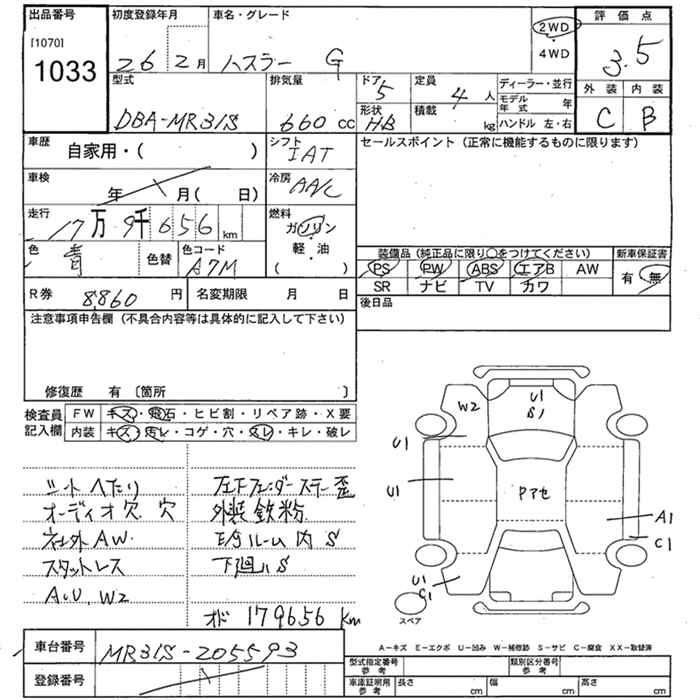 出品番号 初度登録年月 車名・グレード 評価点
[1070]
1033
26 2月 ハスラー G 2WD・4WD 3.5
型式 排気量 ドア 定員 ディーラー・並行 外装 内装
5 4人 モデル年式 年
DBA-MR31S 660cc 形状 HB 積載 kg ハンドル 左・右 C B
車歴 シフト セールスポイント（正常に機能するものに限ります）
自家用・( ) IAT
車検 冷房
年 月( 日) AA/C
走行 燃料
17万9千656km ガソリン
軽・油
( )
色 青 色替 色コード A7M
装備品（純正品に限り○をつけてください） 新車保証書
PS PW ABS エアB AW 有・無
SR ナビ TV カワ
R券 8,860円 名変期限 月 日 後日品
注意事項申告欄（不具合内容等は具体的に記入して下さい）
修復歴 有〔箇所 〕
検査員記入欄 FW キズ・飛石・ヒビ割・リペア跡・X要
内装 キズ・汚レ・コゲ・穴・スレ・キレ・破レ
シートへたり 左下フェンダーステー歪
オーディオ欠 穴 外装鉄粉
社外AW. E/gルーム内S
スタットレス 下廻りS
A・U,W2
オド 179656km
W2 U1
U1
U1
Pアセ
A1
C1
U1
C1
スペア
A－キズ E－エクボ U－凹み W－補修跡 S－サビ C－腐食 XX－取替済
車台番号 MR31S-205593
型式指定番号 参考 類別区分番号 参考
登録番号
車庫証明用 参考 長さ cm 幅 cm 高さ cm